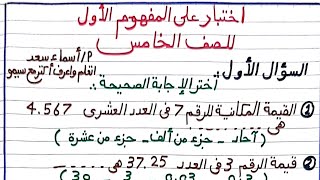 اختبار على المفهوم الأول
للصف الخامس
م/ أسماء سعد
اتعلم واعرف أكتر مع سيمو
السؤال الأول :
اختر الإجابة الصحيحة :
① القيمة المكانية للرقم 7 فى العدد العشرى 4.567
هى
( آحاد - جزء من ألف - جزء من عشرة )
② قيمة الرقم 3 فى العدد 37.25 هى